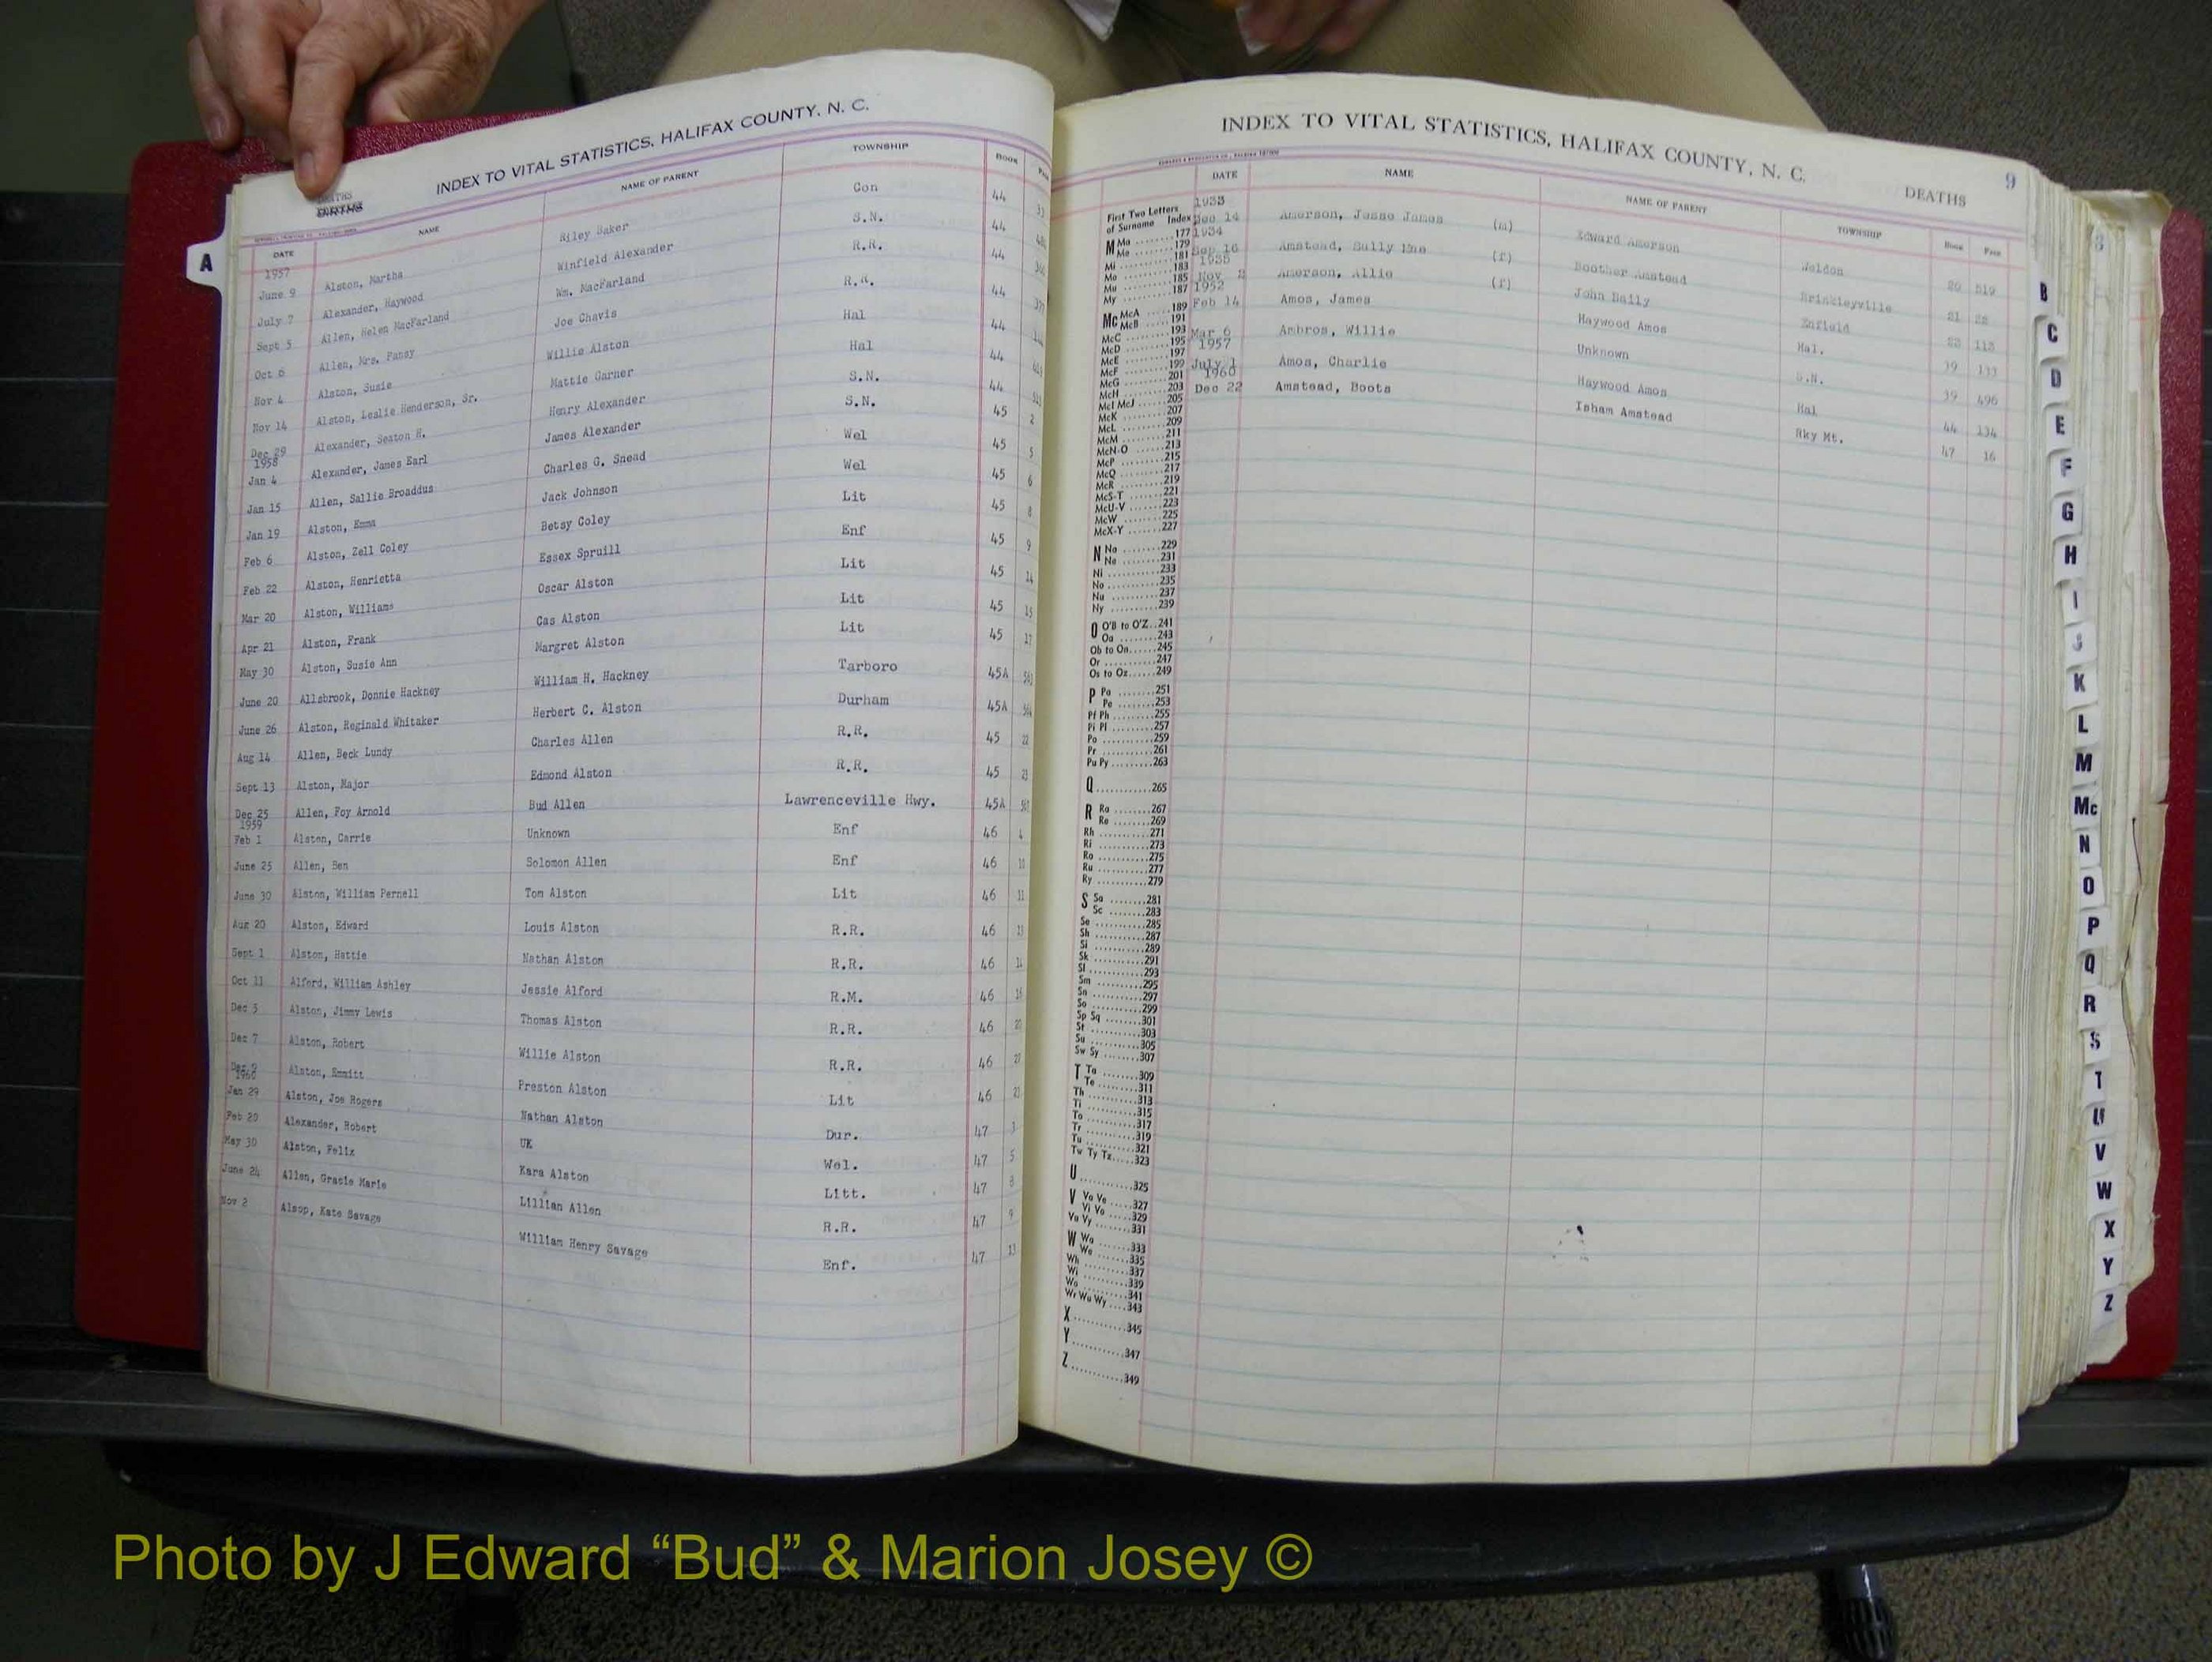 INDEX TO VITAL STATISTICS, HALIFAX COUNTY, N. C.
DEATHS
BIRTHS
DATE NAME NAME OF PARENT TOWNSHIP BOOK
A
1957
June 9 Alston, Martha Riley Baker Con 44
July 7 Alexander, Haywood Winfield Alexander S.N. 44
Sept 5 Allen, Helen MacFarland Wm. MacFarland R.R. 44
Oct 6 Allen, Mrs. Pansy Joe Chavis R.R. 44
Nov 4 Alston, Susie Willie Alston Hal 44
Nov 14 Alston, Leslie Henderson, Sr. Mattie Garner Hal 44
Dec 29 Alexander, Seaton H. Henry Alexander S.N. 44
1958
Jan 4 Alexander, James Earl James Alexander S.N. 45 2
Jan 15 Allen, Sallie Broaddus Charles G. Snead Wel 45 5
Jan 19 Alston, Emma Jack Johnson Wel 45 6
Feb 6 Alston, Zell Coley Betsy Coley Lit 45 8
Feb 22 Alston, Henrietta Essex Spruill Enf 45 9
Mar 20 Alston, Williams Oscar Alston Lit 45 14
Apr 21 Alston, Frank Cas Alston Lit 45 15
May 30 Alston, Susie Ann Margret Alston Lit 45 17
June 20 Allsbrook, Donnie Hackney William H. Hackney Tarboro 45A
June 26 Alston, Reginald Whitaker Herbert C. Alston Durham 45A
Aug 14 Allen, Beck Lundy Charles Allen R.R. 45 22
Sept 13 Alston, Major Edmond Alston R.R. 45 23
Dec 25 Allen, Foy Arnold Bud Allen Lawrenceville Hwy. 45A
1959
Feb 1 Alston, Carrie Unknown Enf 46 4
June 25 Allen, Ben Solomon Allen Enf 46 10
June 30 Alston, William Pernell Tom Alston Lit 46 11
Aug 20 Alston, Edward Louis Alston R.R. 46 13
Sept 1 Alston, Hattie Nathan Alston R.R. 46
Oct 11 Alford, William Ashley Jessie Alford R.M. 46 16
Dec 5 Alston, Jimmy Lewis Thomas Alston R.R. 46 20
Dec 7 Alston, Robert Willie Alston R.R. 46
Dec 9 Alston, Emmitt Preston Alston Lit 46
1960
Jan 29 Alston, Joe Rogers Nathan Alston Dur. 47 3
Feb 20 Alexander, Robert UK Wel. 47 5
May 30 Alston, Felix Kara Alston Litt. 47 8
June 24 Allen, Gracie Marie Lillian Allen R.R. 47 9
Nov 2 Alsop, Kate Savage William Henry Savage Enf. 47 13
INDEX TO VITAL STATISTICS, HALIFAX COUNTY, N. C.
DEATHS 9
DATE NAME NAME OF PARENT TOWNSHIP Book Page
1933
Dec 14 Amerson, Jesse James (m) Edward Amerson Weldon 20 519
1934
Sep 16 Amstead, Sully Mae (f) Boother Amstead Brinkleyville 21 28
1935
Nov 2 Amerson, Allie (f) John Baily Enfield 113
1952
Feb 14 Amos, James Haywood Amos Hal. 39 133
Mar 6 Ambros, Willie Unknown S.N. 39 496
1957
July 1 Amos, Charlie Haywood Amos Hal 44 134
1960
Dec 22 Amstead, Boots Isham Amstead Rky Mt. 47 16
First Two Letters
of Surname Index
M Ma ........177
Me ........179
Mi ........181
Mo ........183
Mu ........185
My ........187
Mc McA .....189
McB .....191
McC .....193
McD .....195
McE .....197
McF .....199
McG .....201
McH .....203
McI McJ .....205
McK .....207
McL .....209
McM .....211
McN-O .....213
McP .....215
McQ .....217
McR .....219
McS-T .....221
McU-V .....223
McW .....225
McX-Y .....227
N Na ........229
Ne ........231
Ni ........233
No ........235
Nu ........237
Ny ........239
O O'B to O'Z..241
Oa ........243
Ob to On......245
Or ........247
Os to Oz......249
P Pa ........251
Pe ........253
Pf Ph ........255
Pi Pl ........257
Po ........259
Pr ........261
Pu Py ........263
Q ........265
R Ra ........267
Re ........269
Rh ........271
Ri ........273
Ro ........275
Ru ........277
Ry ........279
S Sa ........281
Sc ........283
Se ........285
Sh ........287
Si ........289
Sk ........291
Sl ........293
Sm ........295
Sn ........297
So ........299
Sp Sq ........301
St ........303
Su ........305
Sw Sy ........307
T Ta ........309
Te ........311
Th ........313
Ti ........315
To ........317
Tr ........319
Tu ........321
Tw Ty Tz.....323
U ........325
V Va Ve .....327
Vi Vo .....329
Vu Vy .....331
W Wa .....333
We .....335
Wh .....337
Wi .....339
Wo .....341
Wr Wu Wy ....343
X ........345
Y ........347
Z ........349
B
C
D
E
F
G
H
I
J
K
L
M
Mc
N
O
P
Q
R
S
T
U
V
W
X
Y
Z
Photo by J Edward “Bud” & Marion Josey ©